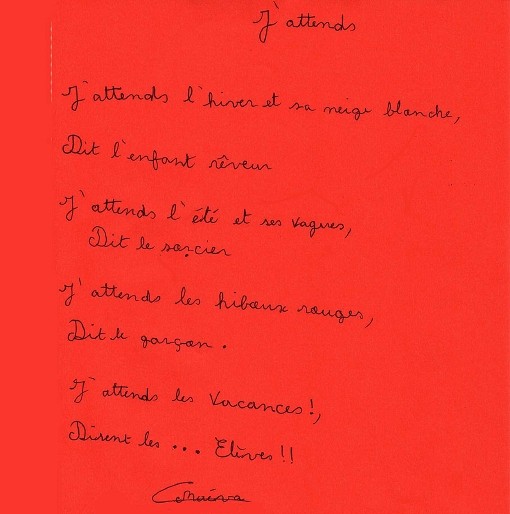 J'attends
J'attends l'hiver et sa neige blanche,
Dit l'enfant rêveur
J'attends l'été et ses vagues,
Dit le sorcier
J'attends les hiboux rouges,
Dit le garçon.
J'attends les vacances !,
Disent les ... Elèves !!